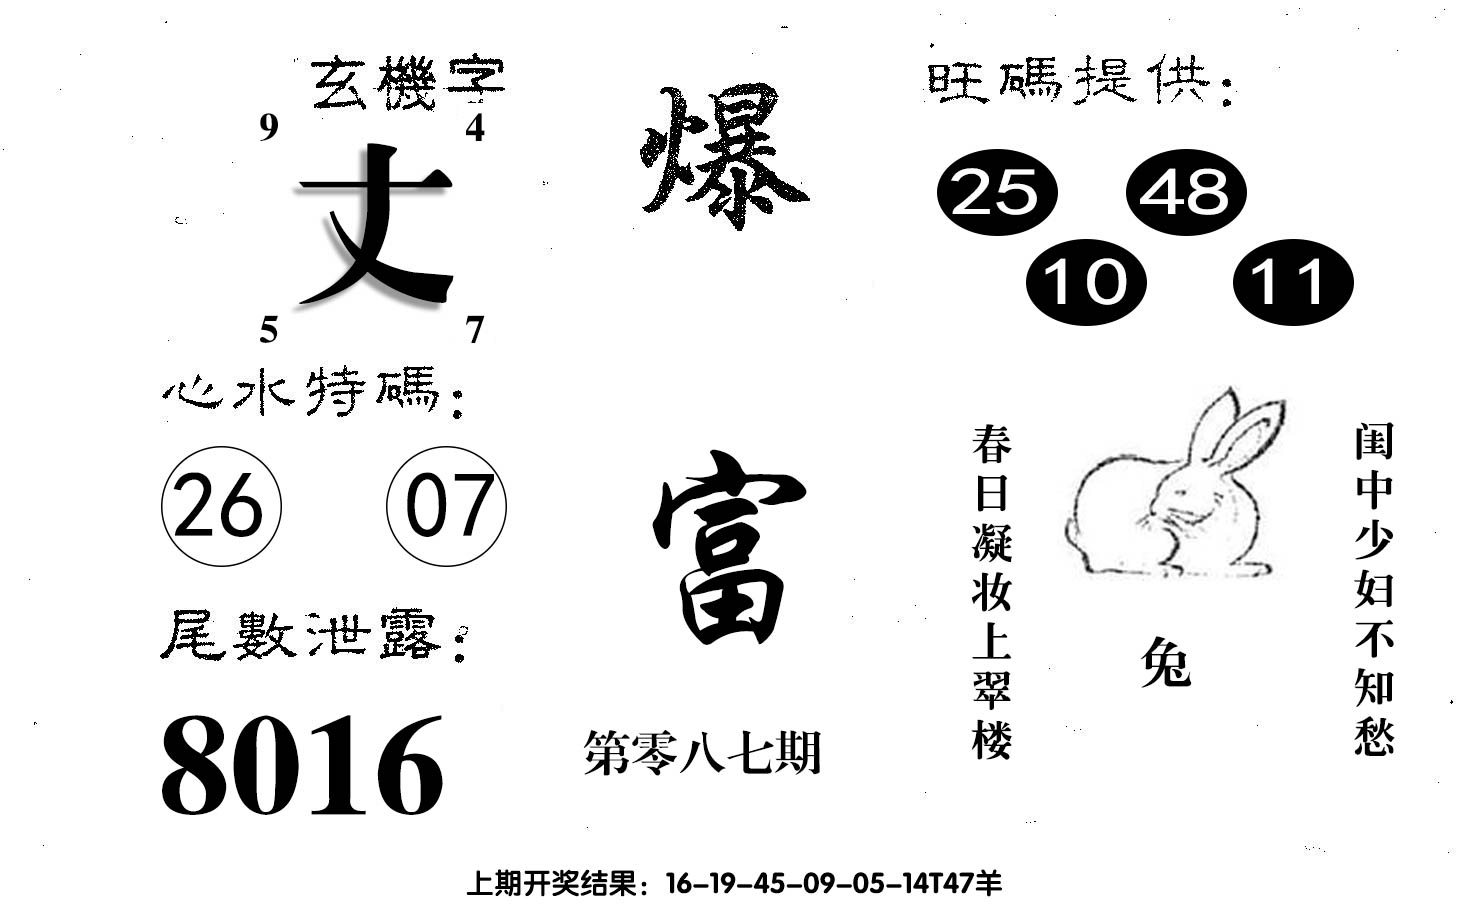 玄機字
9 4
丈
5 7
心水特碼：
26 07
尾數泄露：
8016
爆
富
第零八七期
旺碼提供：
25 48
10 11
闺中少妇不知愁
春日凝妆上翠楼
兔
上期开奖结果：16-19-45-09-05-14T47羊